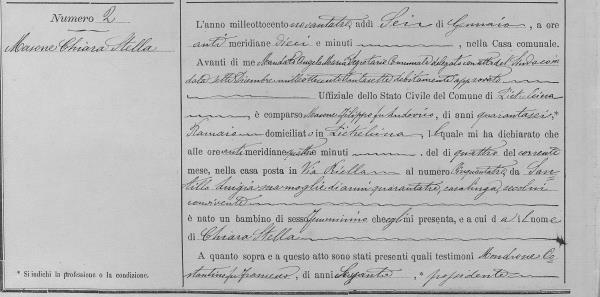 Numero 2
Masone Chiara Stella
L'anno millottocento novantatre, addì Sei di Gennaio, a ore
anti meridiane dieci e minuti, nella Casa comunale.
Avanti di me Segretario Comunale delegato con atto del Sindaco in
data Dicembre milleottocento debitamente approvato
Uffiziale dello Stato Civile del Comune di
è comparso Masone Filippo fu, di anni quarantasei*
Ramaio domiciliato in, il quale mi ha dichiarato che
alle ore anti meridiane e minuti, del dì quattro del corrente
mese, nella casa posta in Via Riella al numero cinquantatre, da San-
tillo sua moglie di anni quarantatre, casalinga, secolui
convivente
è nato un bambino di sesso femminino che egli mi presenta, e a cui dà il nome
di Chiara Stella
A quanto sopra e a questo atto sono stati presenti quali testimoni Mondrone Co-
stantino fu Francesco, di anni, * possidente
* Si indichi la professione o la condizione.